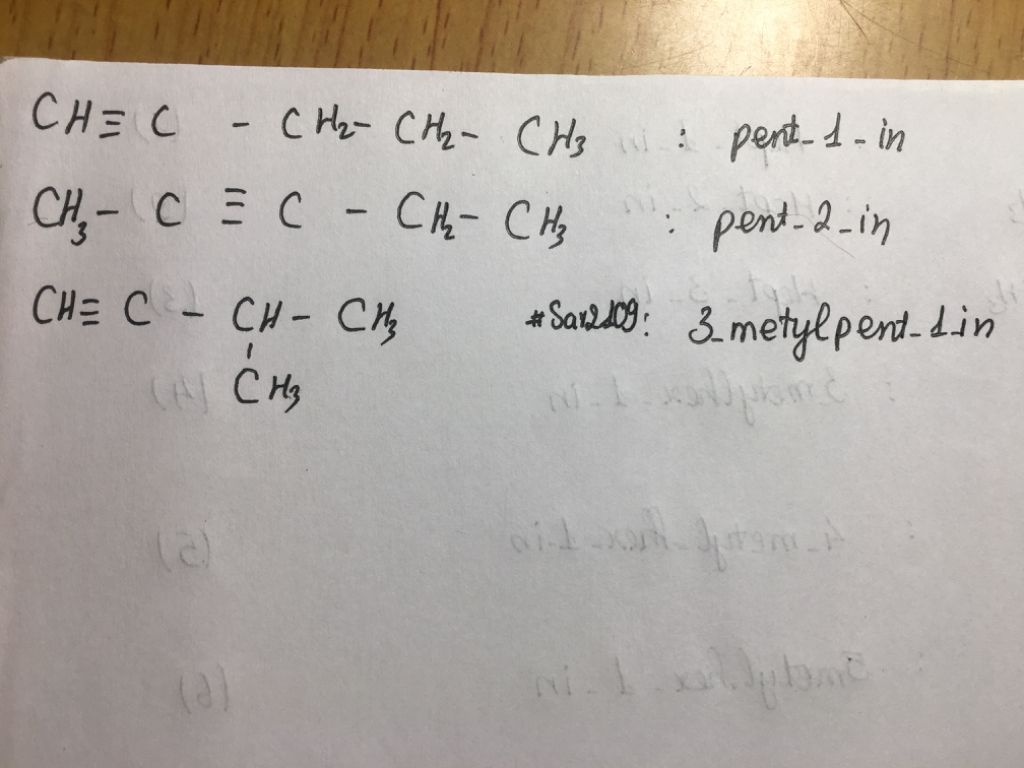 CH≡C - CH₂- CH₂- CH₃ : pent-1-in
CH₃- C ≡ C - CH₂- CH₃ : pent-2-in
CH≡ C - CH - CH₃ #Sar2109: 3-metylpent-1-in
CH₃